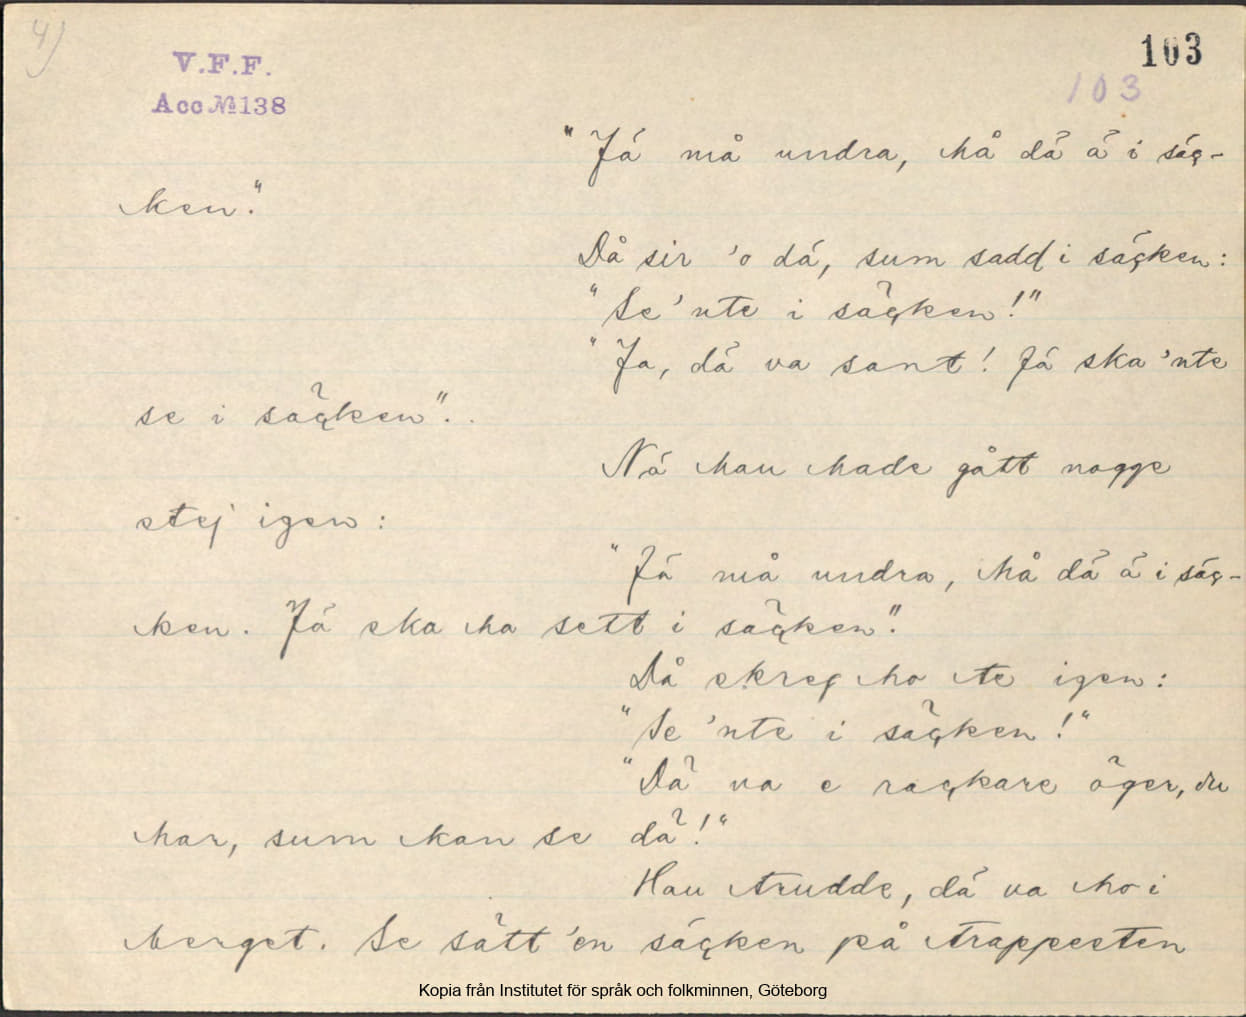 4)
V.F.F.
Acc № 138
103
103
"Já må undra, hå dä ä i säç-
ken."
Då sir 'o dá, sum sadd i säçken:
"Se 'nte i säçken!"
"Ja, dä va sant! Já ska 'nte
se i säçken".
Ná han hade gått nogge
stej igen:
"Já må undra, hå dä ä i säç-
ken. Já ska ha sett i säçken."
Då skreg ho te igen:
"Se 'nte i säçken!"
"Dä va e raçkare öger, du
har, sum kan se dä!"
Han trudde, dä va ho i
berget. Se sätt 'en säçken på trappesten
Kopia från Institutet för språk och folkminnen, Göteborg